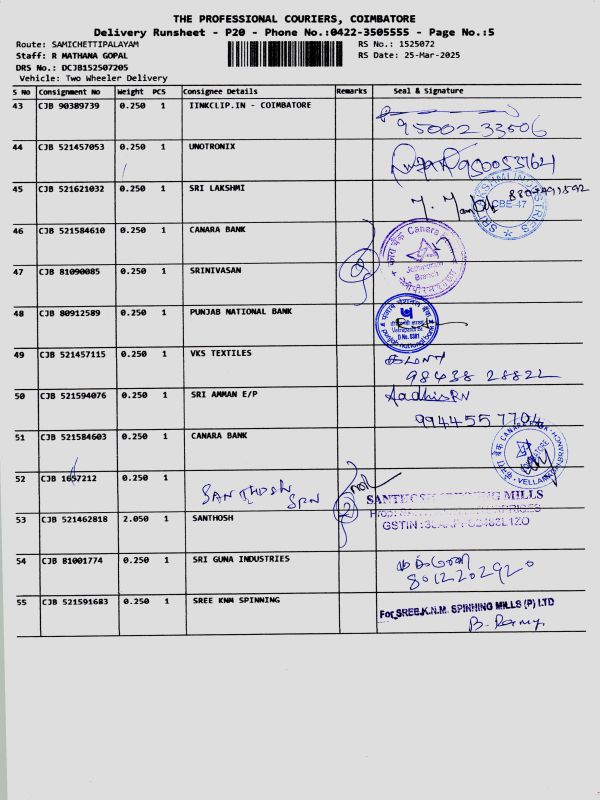 THE PROFESSIONAL COURIERS, COIMBATORE
Delivery Runsheet - P20 - Phone No.:0422-3505555 - Page No.:5
Route: SAMICHETTIPALAYAM RS No.: 1525072
Staff: R MATHANA GOPAL RS Date: 25-Mar-2025
DRS No.: DCJB152507205
Vehicle: Two Wheeler Delivery
S No Consignment No Weight PCS Consignee Details Remarks Seal & Signature
43 CJB 90389739 0.250 1 IINKCLIP.IN - COIMBATORE
9500233506
44 CJB 521457053 0.250 1 UNOTRONIX
45 CJB 521621032 0.250 1 SRI LAKSHMI
SRI LAKSHMI INDUSTRIES CBE-47
46 CJB 521584610 0.250 1 CANARA BANK
Canara
Branch
47 CJB 81090085 0.250 1 SRINIVASAN
48 CJB 80912589 0.250 1 PUNJAB NATIONAL BANK
punjab national bank
49 CJB 521457115 0.250 1 VKS TEXTILES
98438 28822
50 CJB 521594076 0.250 1 SRI AMMAN E/P
9944557704
51 CJB 521584603 0.250 1 CANARA BANK
CANARA BANK
52 CJB 1657212 0.250 1
SANTHOSH SPN
SANTHOSH SPINNING MILLS
53 CJB 521462818 2.050 1 SANTHOSH
54 CJB 81001774 0.250 1 SRI GUNA INDUSTRIES
8012202920
55 CJB 521591683 0.250 1 SREE KNM SPINNING
For SREE.K.N.M. SPINNING MILLS (P) LTD